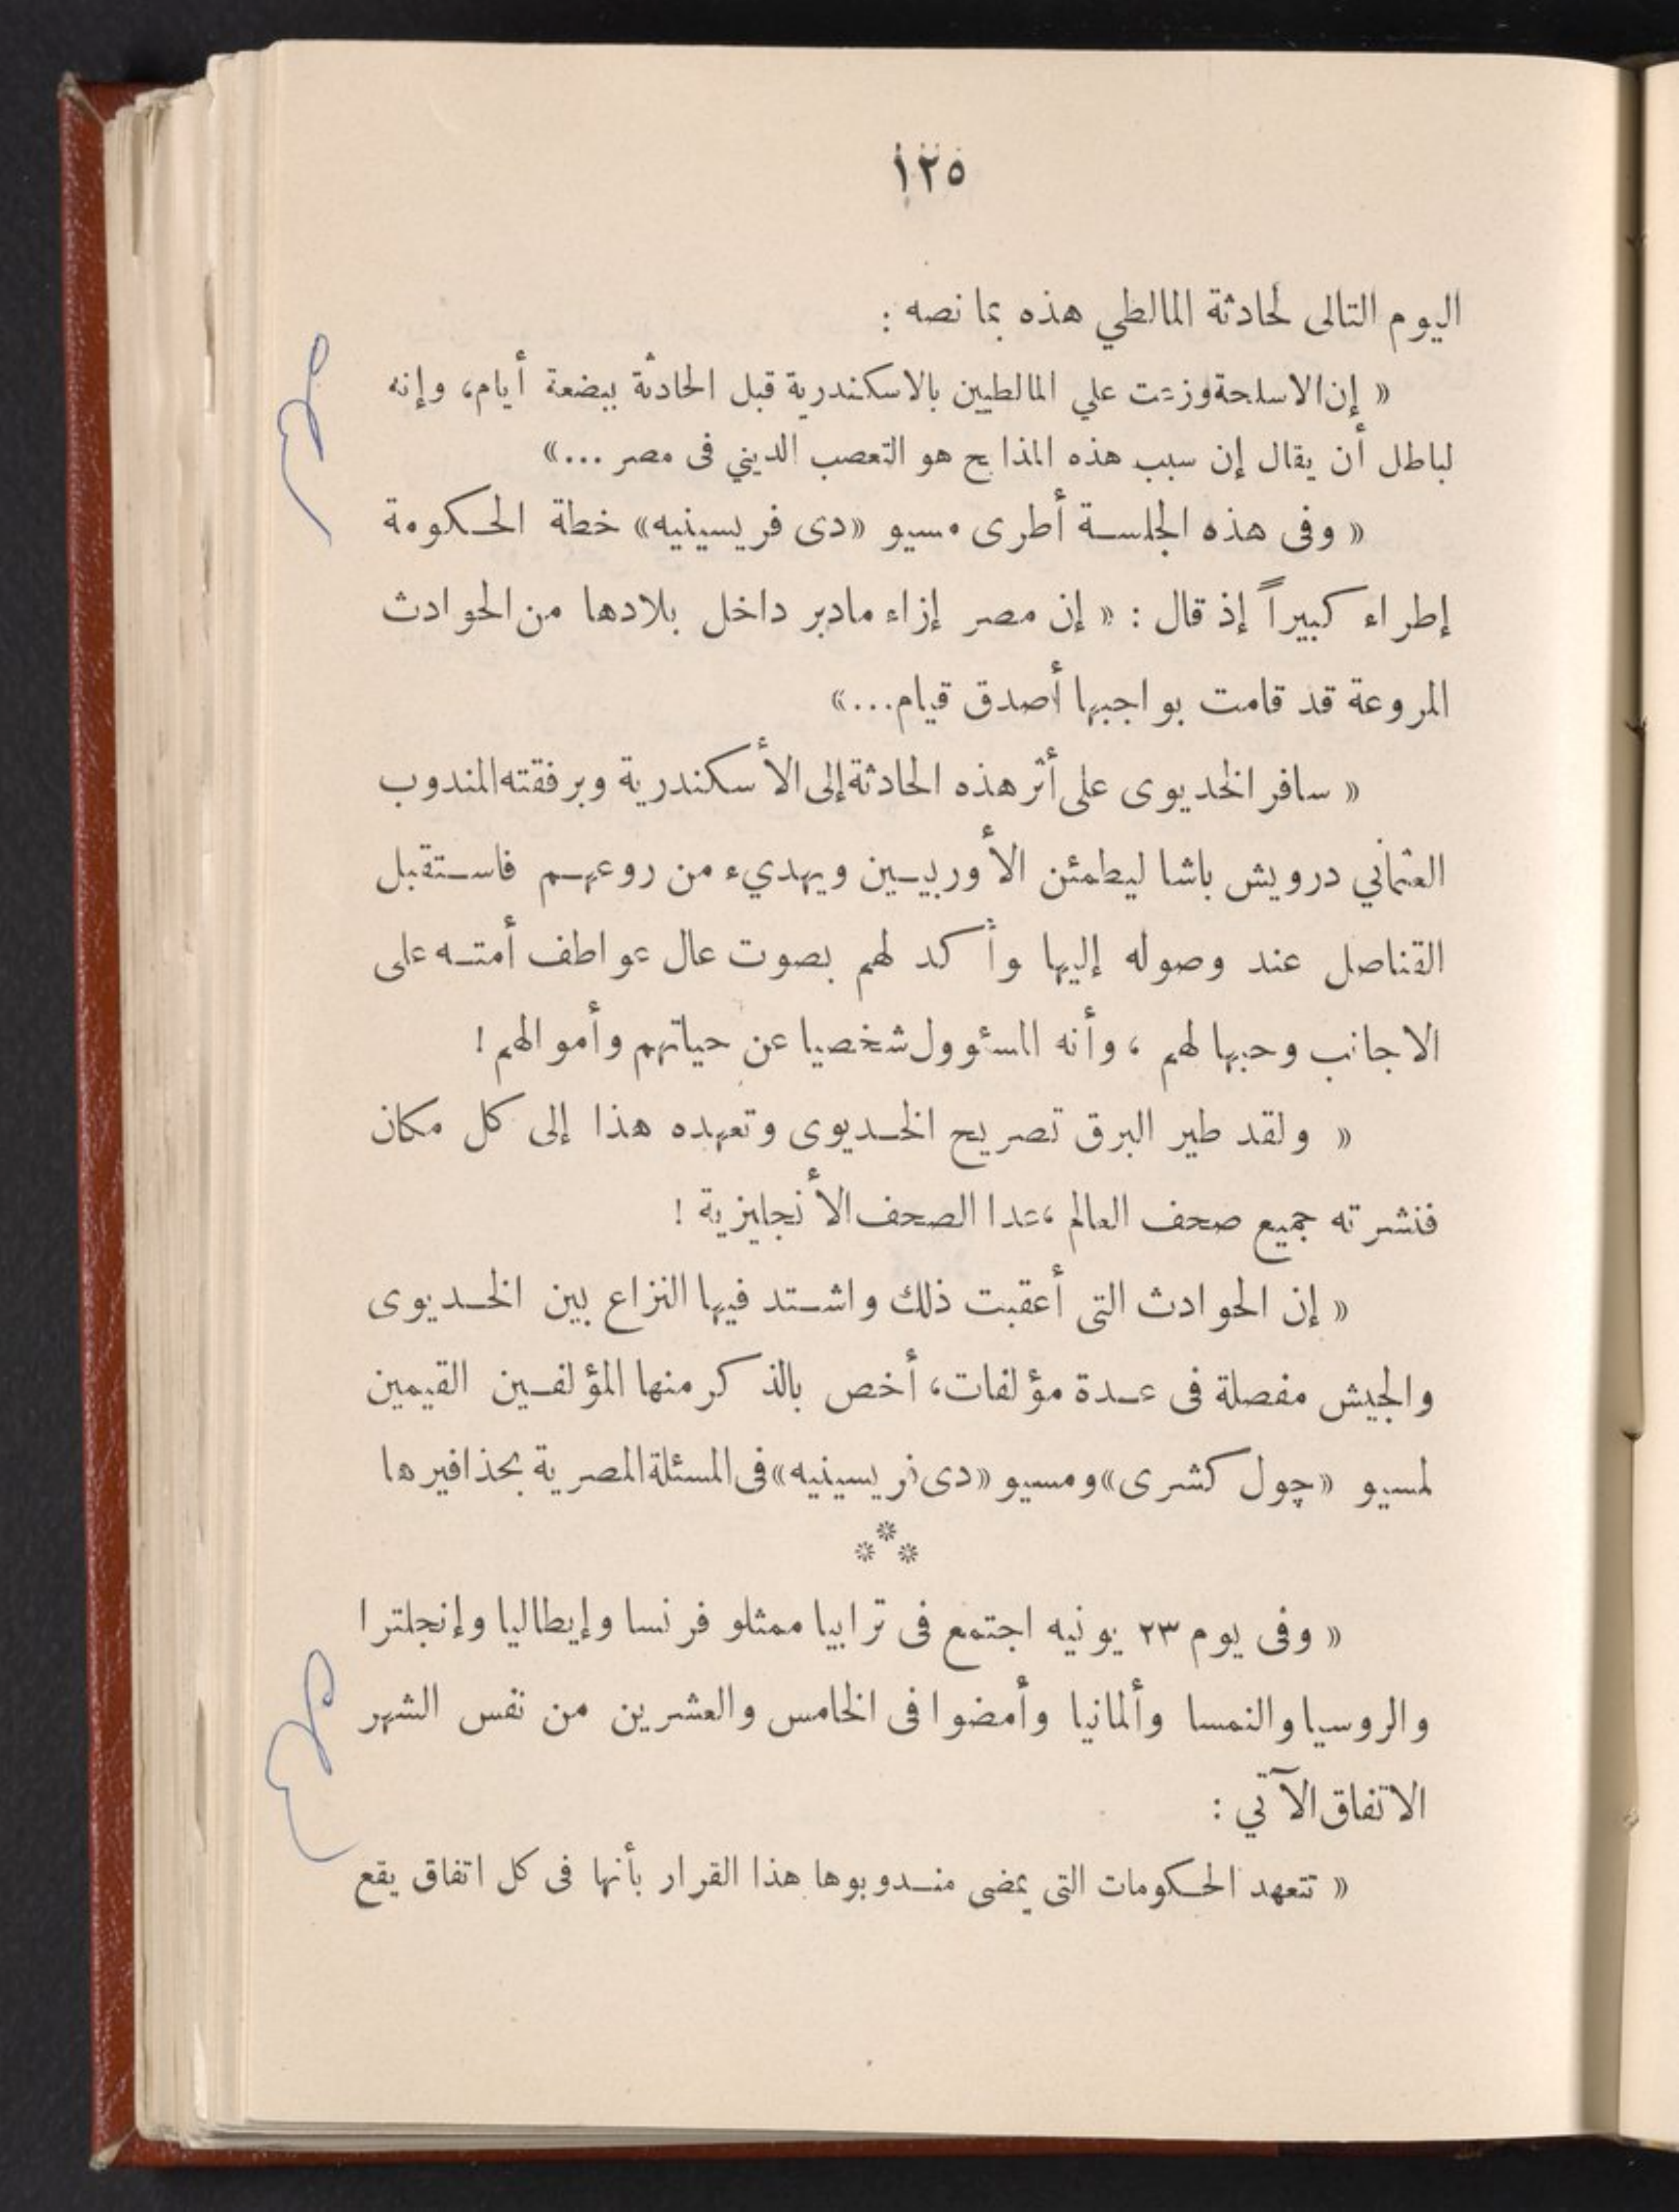 ١٢٥
اليوم التالى لحادثة المالطي هذه بما نصه :
« إن الاسلحة وزعت علي المالطيين بالاسكندرية قبل الحادثة ببضعة أيام، وإنه
لباطل أن يقال إن سبب هذه المذابح هو التعصب الديني فى مصر ...»
« وفى هذه الجلسة أطرى مسيو «دى فريسينيه» خطة الحكومة
إطراء كبيراً إذ قال : « إن مصر إزاء مادبر داخل بلادها من الحوادث
المروعة قد قامت بواجبها أصدق قيام...»
« سافر الخديوى على أثر هذه الحادثة إلى الأسكندرية وبرفقته المندوب
العثماني درويش باشا ليطمئن الأوربيين ويهديء من روعهم فاستقبل
القناصل عند وصوله إليها وأكد لهم بصوت عال عواطف أمته على
الاجانب وحبها لهم ، وأنه المسئوول شخصيا عن حياتهم وأموالهم !
« ولقد طير البرق تصريح الخديوى وتعهده هذا إلى كل مكان
فنشرته جميع صحف العالم ،عدا الصحف الأنجليزية !
« إن الحوادث التى أعقبت ذلك واشتد فيها النزاع بين الخديوى
والجيش مفصلة فى عدة مؤلفات، أخص بالذكر منها المؤلفين القيمين
لمسيو «چول كشرى» ومسيو «دى فريسينيه» فى المسئلة المصرية بحذافيرها
***
« وفى يوم ٢٣ يونيه اجتمع فى ترابيا ممثلو فرنسا وإيطاليا وإنجلترا
والروسيا والنمسا وألمانيا وأمضوا فى الخامس والعشرين من نفس الشهر
الاتفاق الآتي :
« تتعهد الحكومات التى يمضى مندوبوها هذا القرار بأنها فى كل اتفاق يقع